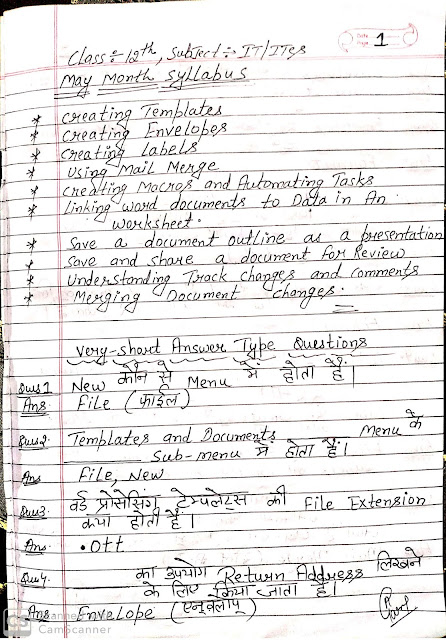 Date
Page 1
Class :- 12th, Subject :- IT/ITes
May Month Syllabus
* Creating Templates
* Creating Envelopes
* Creating Labels
* Using Mail Merge
* Creating Macros and Automating Tasks
* Linking word documents to Data in An
worksheet.
* Save a document outline as a presentation
* Save and share a document for Review
* Understanding Track changes and Comments
* Merging Document changes.
Very-short Answer Type Questions
Ques 1 New कौन से Menu में होता है।
Ans. File (फाईल)
Ques 2. Templates and Documents ______ Menu के
______ Sub-menu में होता है।
Ans File, New
Ques 3. वर्ड प्रोसेसिंग टेम्पलेट्स की File Extension
क्या होती है।
Ans. .ott
Ques 4. ______ का उपयोग Return Address लिखने
के लिए किया जाता है।
Ans Envelope (एन्वेलाप)
CS
CamScanner